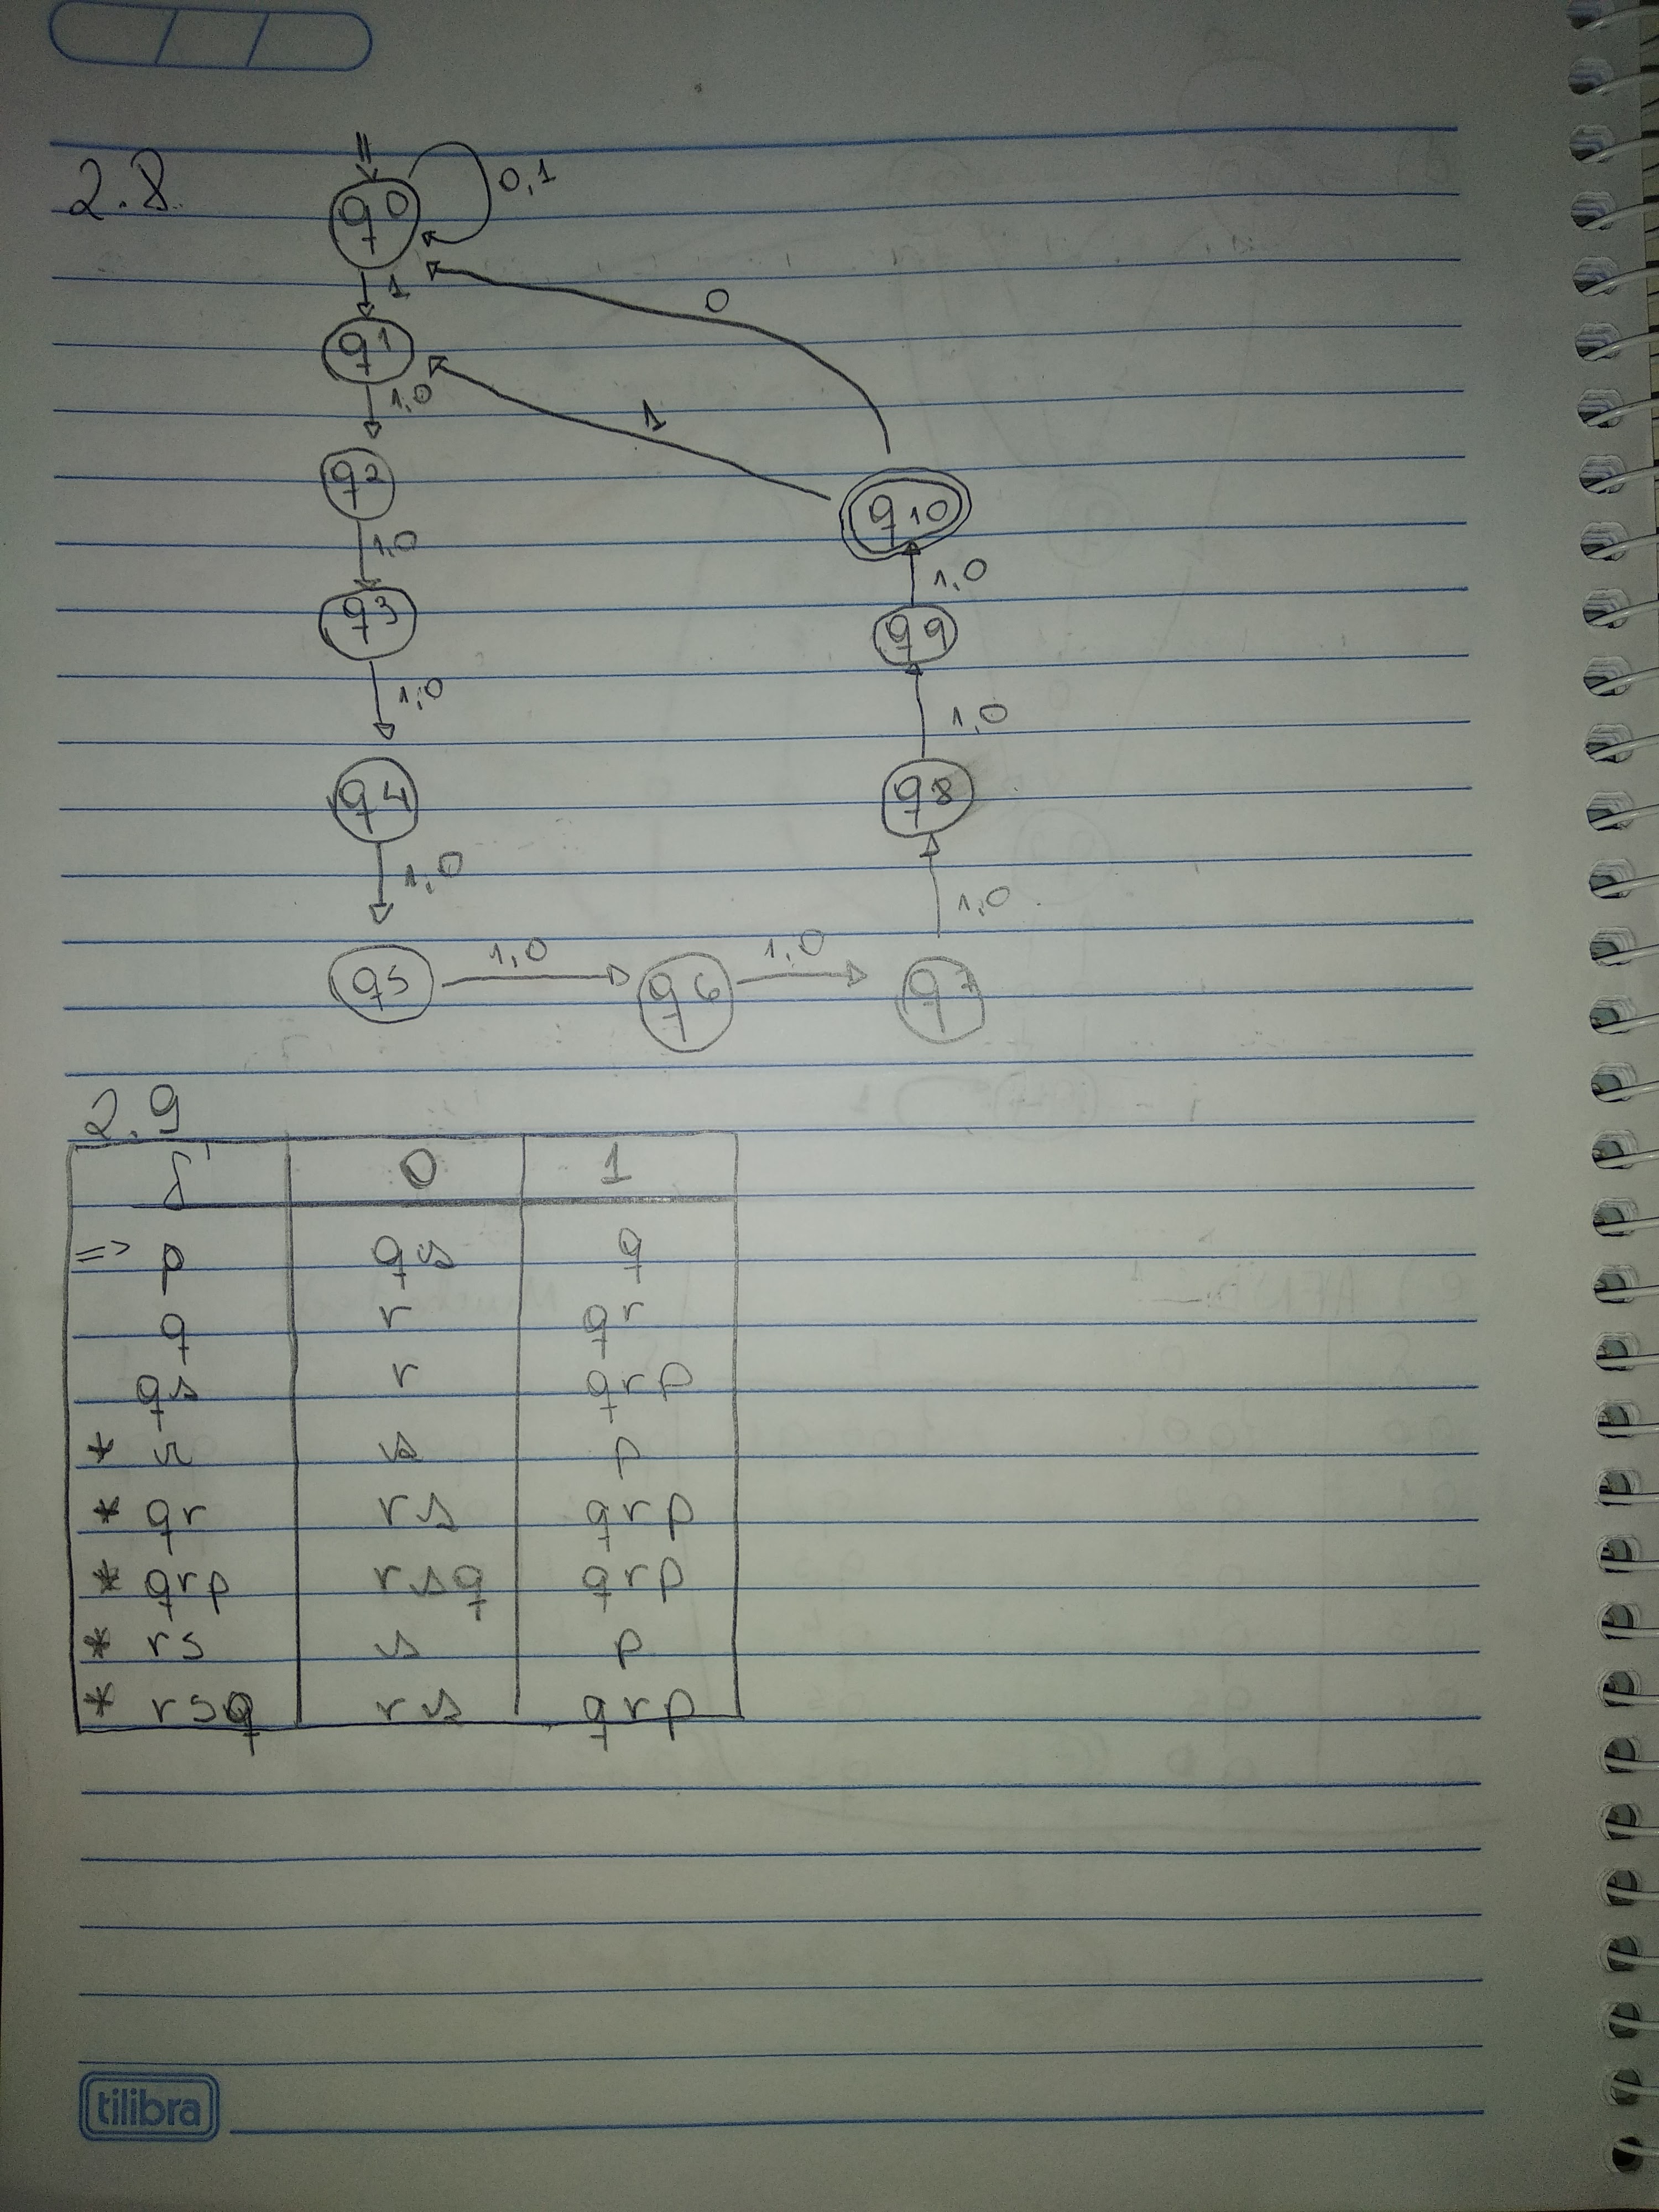 2.8
q0 0,1
1 0
q1
1,0 1
q2 q10
1,0 1,0
q3 q9
1,0 1,0
q4 q8
1,0 1,0
q5 1,0 q6 1,0 q7
2.9
δ' 0 1
=> p qs q
q r qr
qs r qrp
* r s p
* qr rs qrp
* qrp rsq qrp
* rs s p
* rsq rs qrp
tilibra